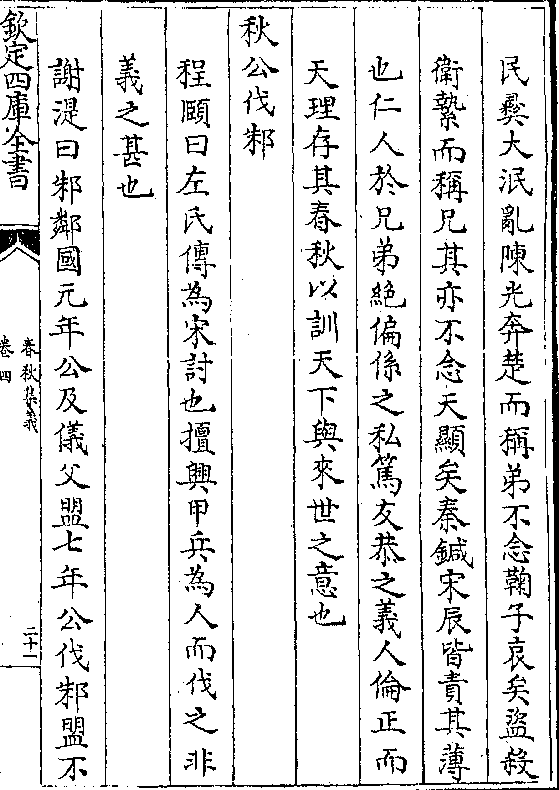 民彛大泯亂陳光奔楚而稱弟不念鞠子哀矣盜殺
衛縶而稱兄其亦不念天顯矣秦鍼宋辰皆責其薄
也仁人於兄弟絶偏係之私篤友恭之義人倫正而
天理存其春秋以訓天下與來世之意也
秋公伐邾
程頤曰左氏傳為宋討也擅興甲兵為人而伐之非
義之甚也
謝湜曰邾鄰國元年公及儀父盟七年公伐邾盟不
欽定四庫全書
春秋集義
卷四
二十一